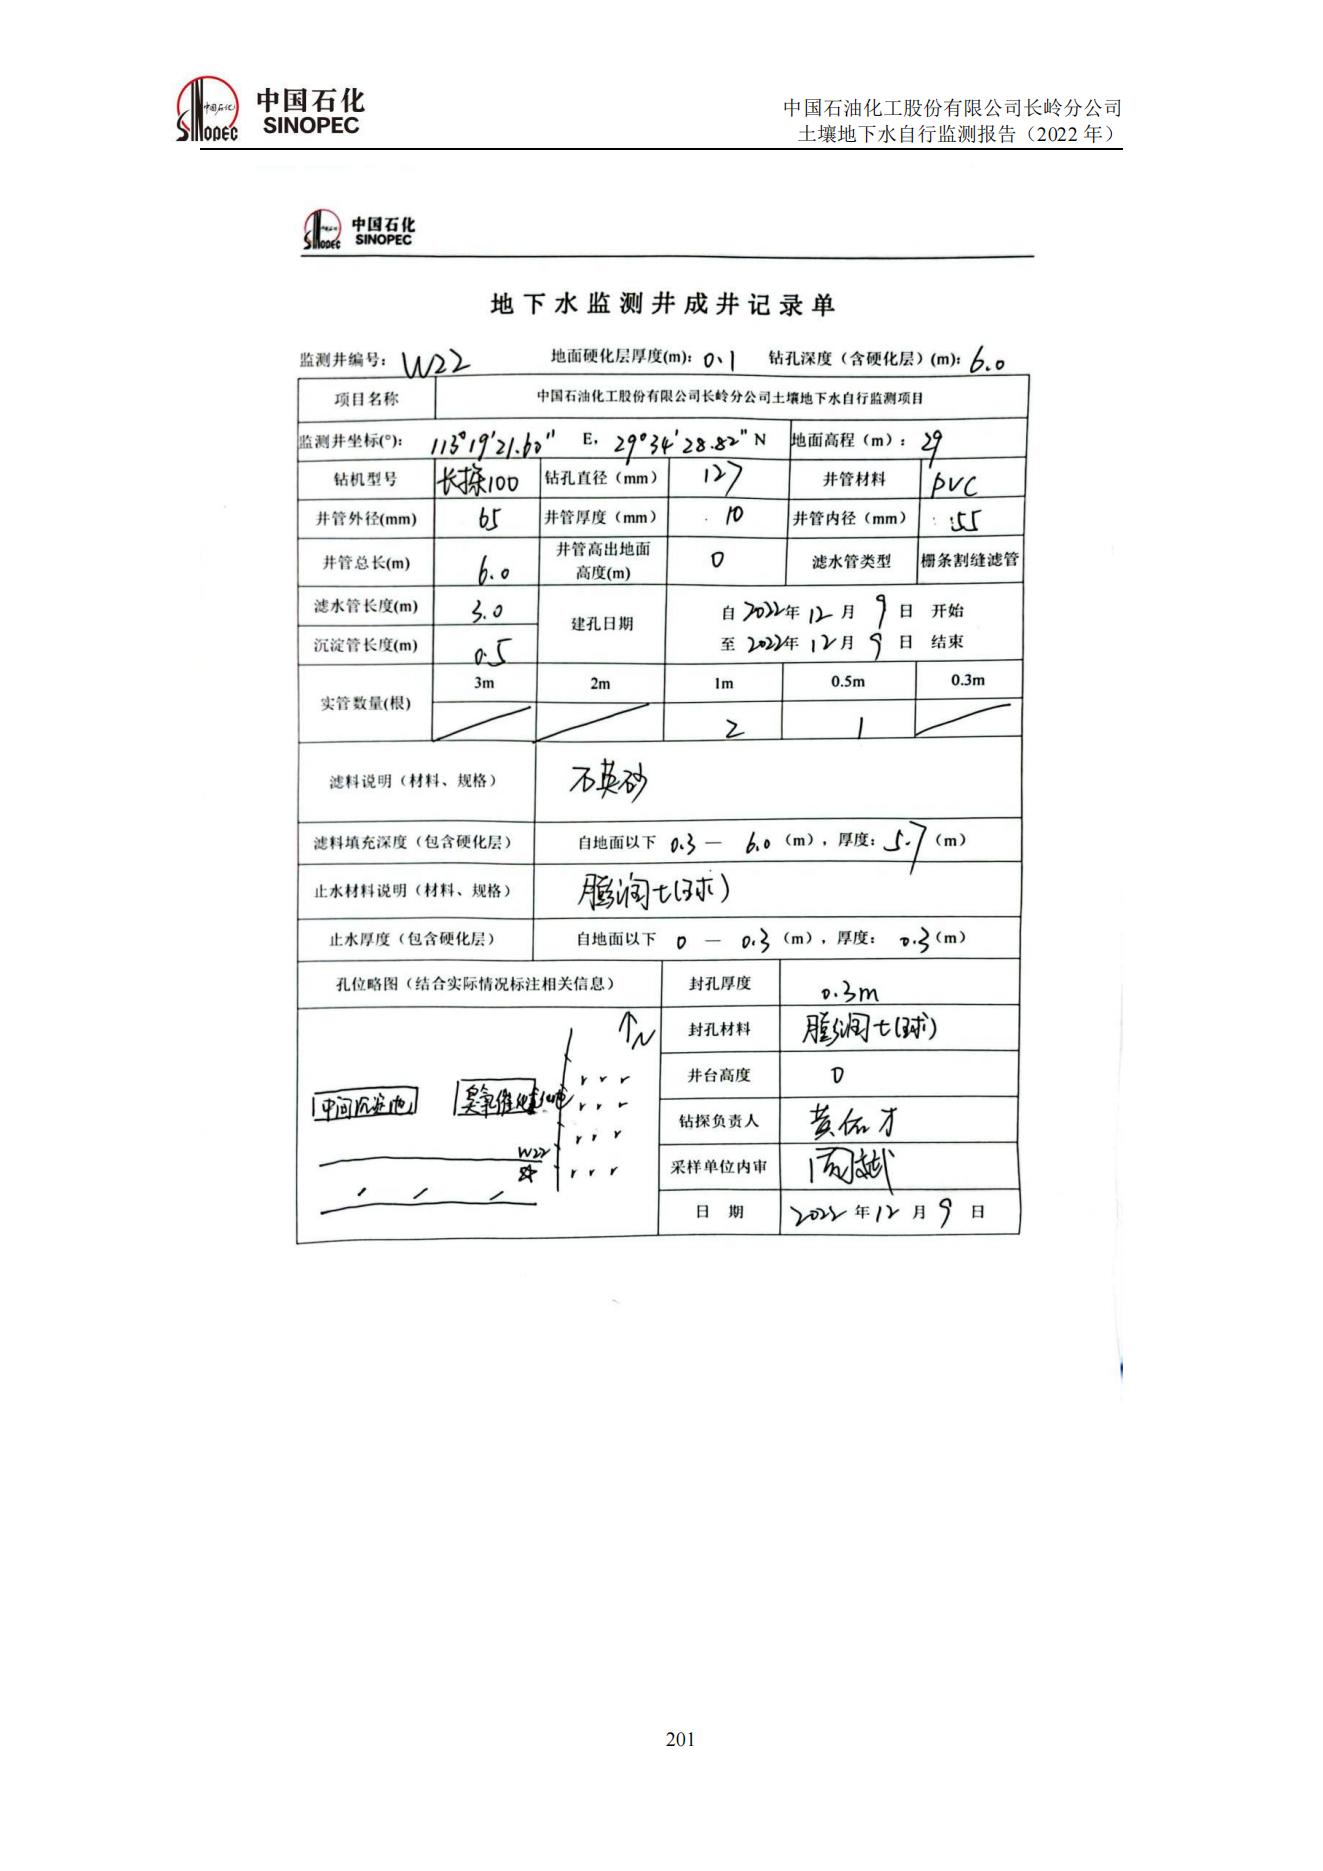 中国石化
SINOPEC
中国石油化工股份有限公司长岭分公司
土壤地下水自行监测报告（2022 年）
中国石化
SINOPEC
地下水监测井成井记录单
监测井编号： W22 地面硬化层厚度(m)： 0.1 钻孔深度（含硬化层）(m)： 6.0
项目名称 中国石油化工股份有限公司长岭分公司土壤地下水自行监测项目
监测井坐标(°)： 113°19′21.60″ E， 29°34′28.82″ N 地面高程（m）： 29
钻机型号 长探100 钻孔直径（mm） 127 井管材料 PVC
井管外径(mm) 65 井管厚度（mm） 10 井管内径（mm） 55
井管总长(m) 6.0 井管高出地面高度(m) 0 滤水管类型 栅条割缝滤管
滤水管长度(m) 3.0 建孔日期 自 2022年 12 月 9 日 开始
沉淀管长度(m) 0.5 至 2022年 12 月 9 日 结束
实管数量(根) 3m 2m 1m 0.5m 0.3m
2 1
滤料说明（材料、规格） 石英砂
滤料填充深度（包含硬化层） 自地面以下 0.3 — 6.0 （m），厚度： 5.7 （m）
止水材料说明（材料、规格） 膨润土（球）
止水厚度（包含硬化层） 自地面以下 0 — 0.3 （m），厚度： 0.3 （m）
孔位略图（结合实际情况标注相关信息） 封孔厚度 0.3m
N
封孔材料 膨润土（球）
井台高度 0
中间沉淀池 臭氧催化
钻探负责人
W22
采样单位内审 周斌
日 期 2022 年 12 月 9 日
201